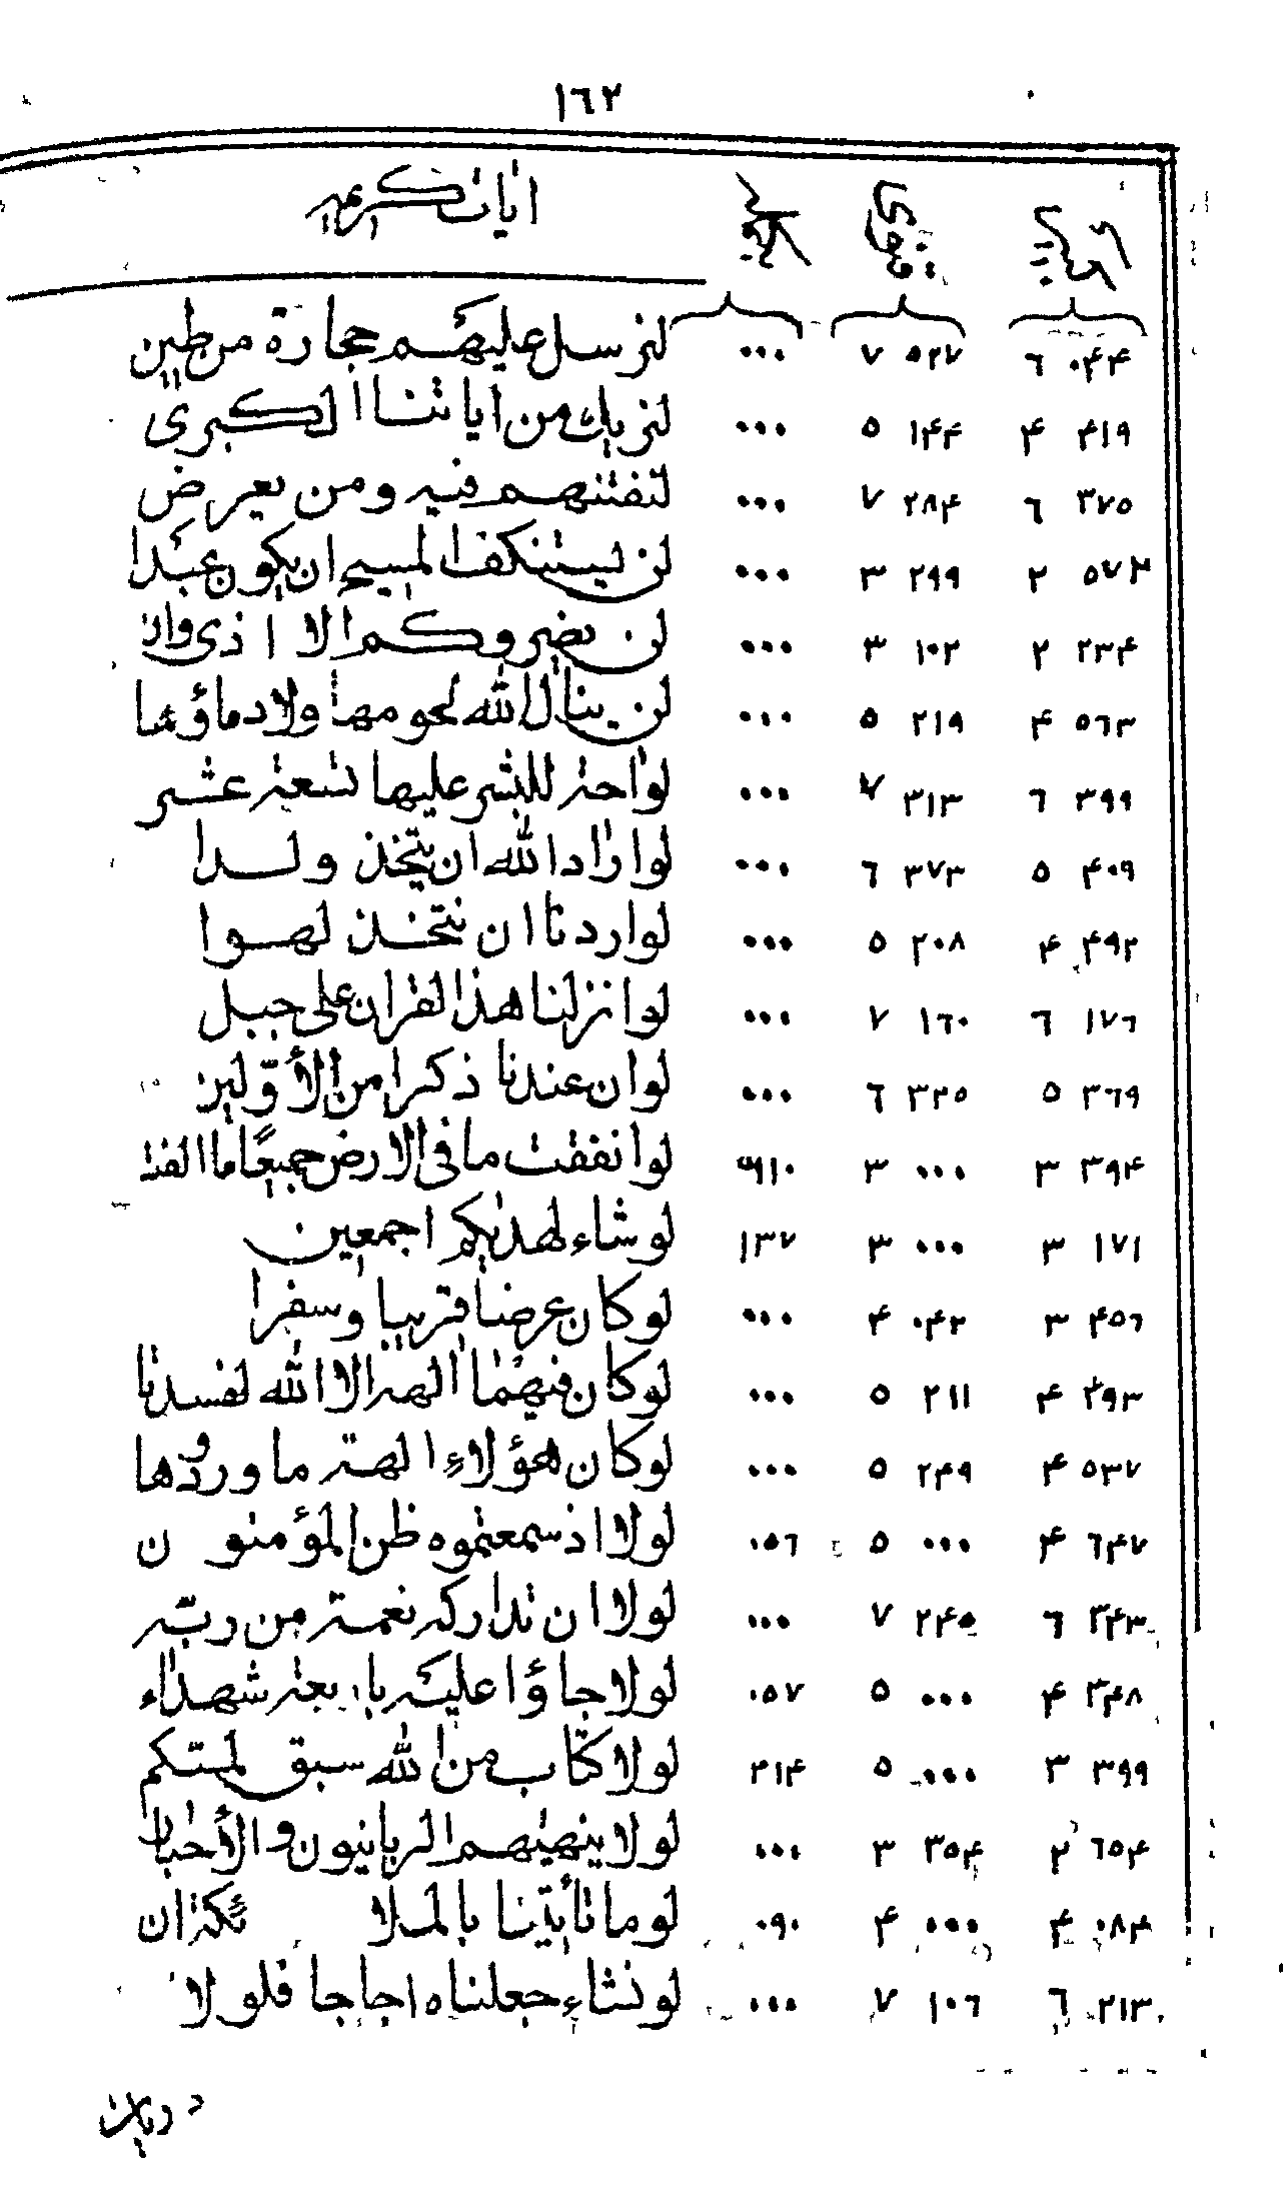 ١٦٢
ايات كريمه
٠۴۴ ٦ ٥٢٧ ٧ ٠٠٠ لنرسل عليهم حجارة من طين
۴١٩ ۴ ١۴۴ ٥ ٠٠٠ لنريك من اياتنا الكبرى
٣٧٥ ٦ ٢٨۴ ٧ ٠٠٠ لنفتنهم فيه ومن يعرض
٥٧٣ ٢ ٢٩٩ ٣ ٠٠٠ لن يستنكف المسيح ان يكون عبدا
٢٣۴ ٢ ١٠٢ ٣ ٠٠٠ لن يضروكم الا اذى وان
٥٦٣ ۴ ٢١٩ ٥ ٠٠٠ لن ينال الله لحومها ولا دماؤها
٣٩٩ ٦ ٣١٣ ٧ ٠٠٠ لواحة للبشر عليها تسعة عشر
۴٠٩ ٥ ٣٧٣ ٦ ٠٠٠ لو اراد الله ان يتخذ ولدا
۴٩٢ ۴ ٢٠٨ ٥ ٠٠٠ لو اردنا ان نتخذ لهوا
١٧٦ ٦ ١٦٠ ٧ ٠٠٠ لو انزلنا هذا القران على جبل
٣٦٩ ٥ ٣٣٥ ٦ ٠٠٠ لو ان عندنا ذكرا من الأوّلين
٣٩۴ ٣ ٠٠٠ ٣ ٩١٠ لو انفقت ما فى الارض جميعًا ما الفت
١٧١ ٣ ٠٠٠ ٣ ١٣٧ لو شاء لهديكم اجمعين
۴٥٦ ٣ ٠۴٢ ۴ ٠٠٠ لو كان عرضا قريبا وسفرا
٢٩٣ ۴ ٢١١ ٥ ٠٠٠ لو كان فيهما الهه الا الله لفسدتا
٥٣٧ ۴ ٢۴٩ ٥ ٠٠٠ لو كان هؤلاء الهة ما وردوها
٦۴٧ ۴ ٠٠٠ ٥ ٠٥٦ لولا اذ سمعتموه ظن المؤمنون
٣۴٣ ٦ ٢۴٥ ٧ ٠٠٠ لولا ان تداركه نعمة من ربّه
٣۴٨ ۴ ٠٠٠ ٥ ٠٥٧ لولا جاؤا عليه باربعة شهداء
٣٩٩ ٣ ٠٠٠ ٥ ٣١۴ لولا كتاب من الله سبق لمستكم
٦٥۴ ٢ ٣٥۴ ٣ ٠٠٠ لولا ينهيهم الربانيون والأحبار
٠٨۴ ۴ ٠٠٠ ۴ ٠٩٠ لو ما تأتينا بالملائكة ان
٢١٣ ٦ ١٠٦ ٧ ٠٠٠ لو نشاء جعلناه اجاجا فلولا